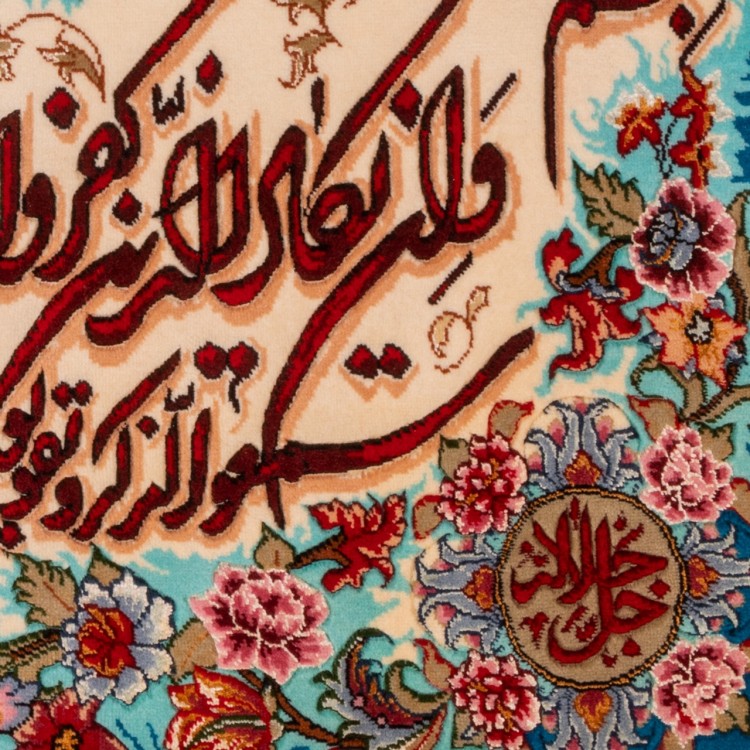 وَاِن یَکادُ الَّذینَ کَفَروا
سَمِعُوا الذِّکرَ وَ یَقولو
جل جلاله